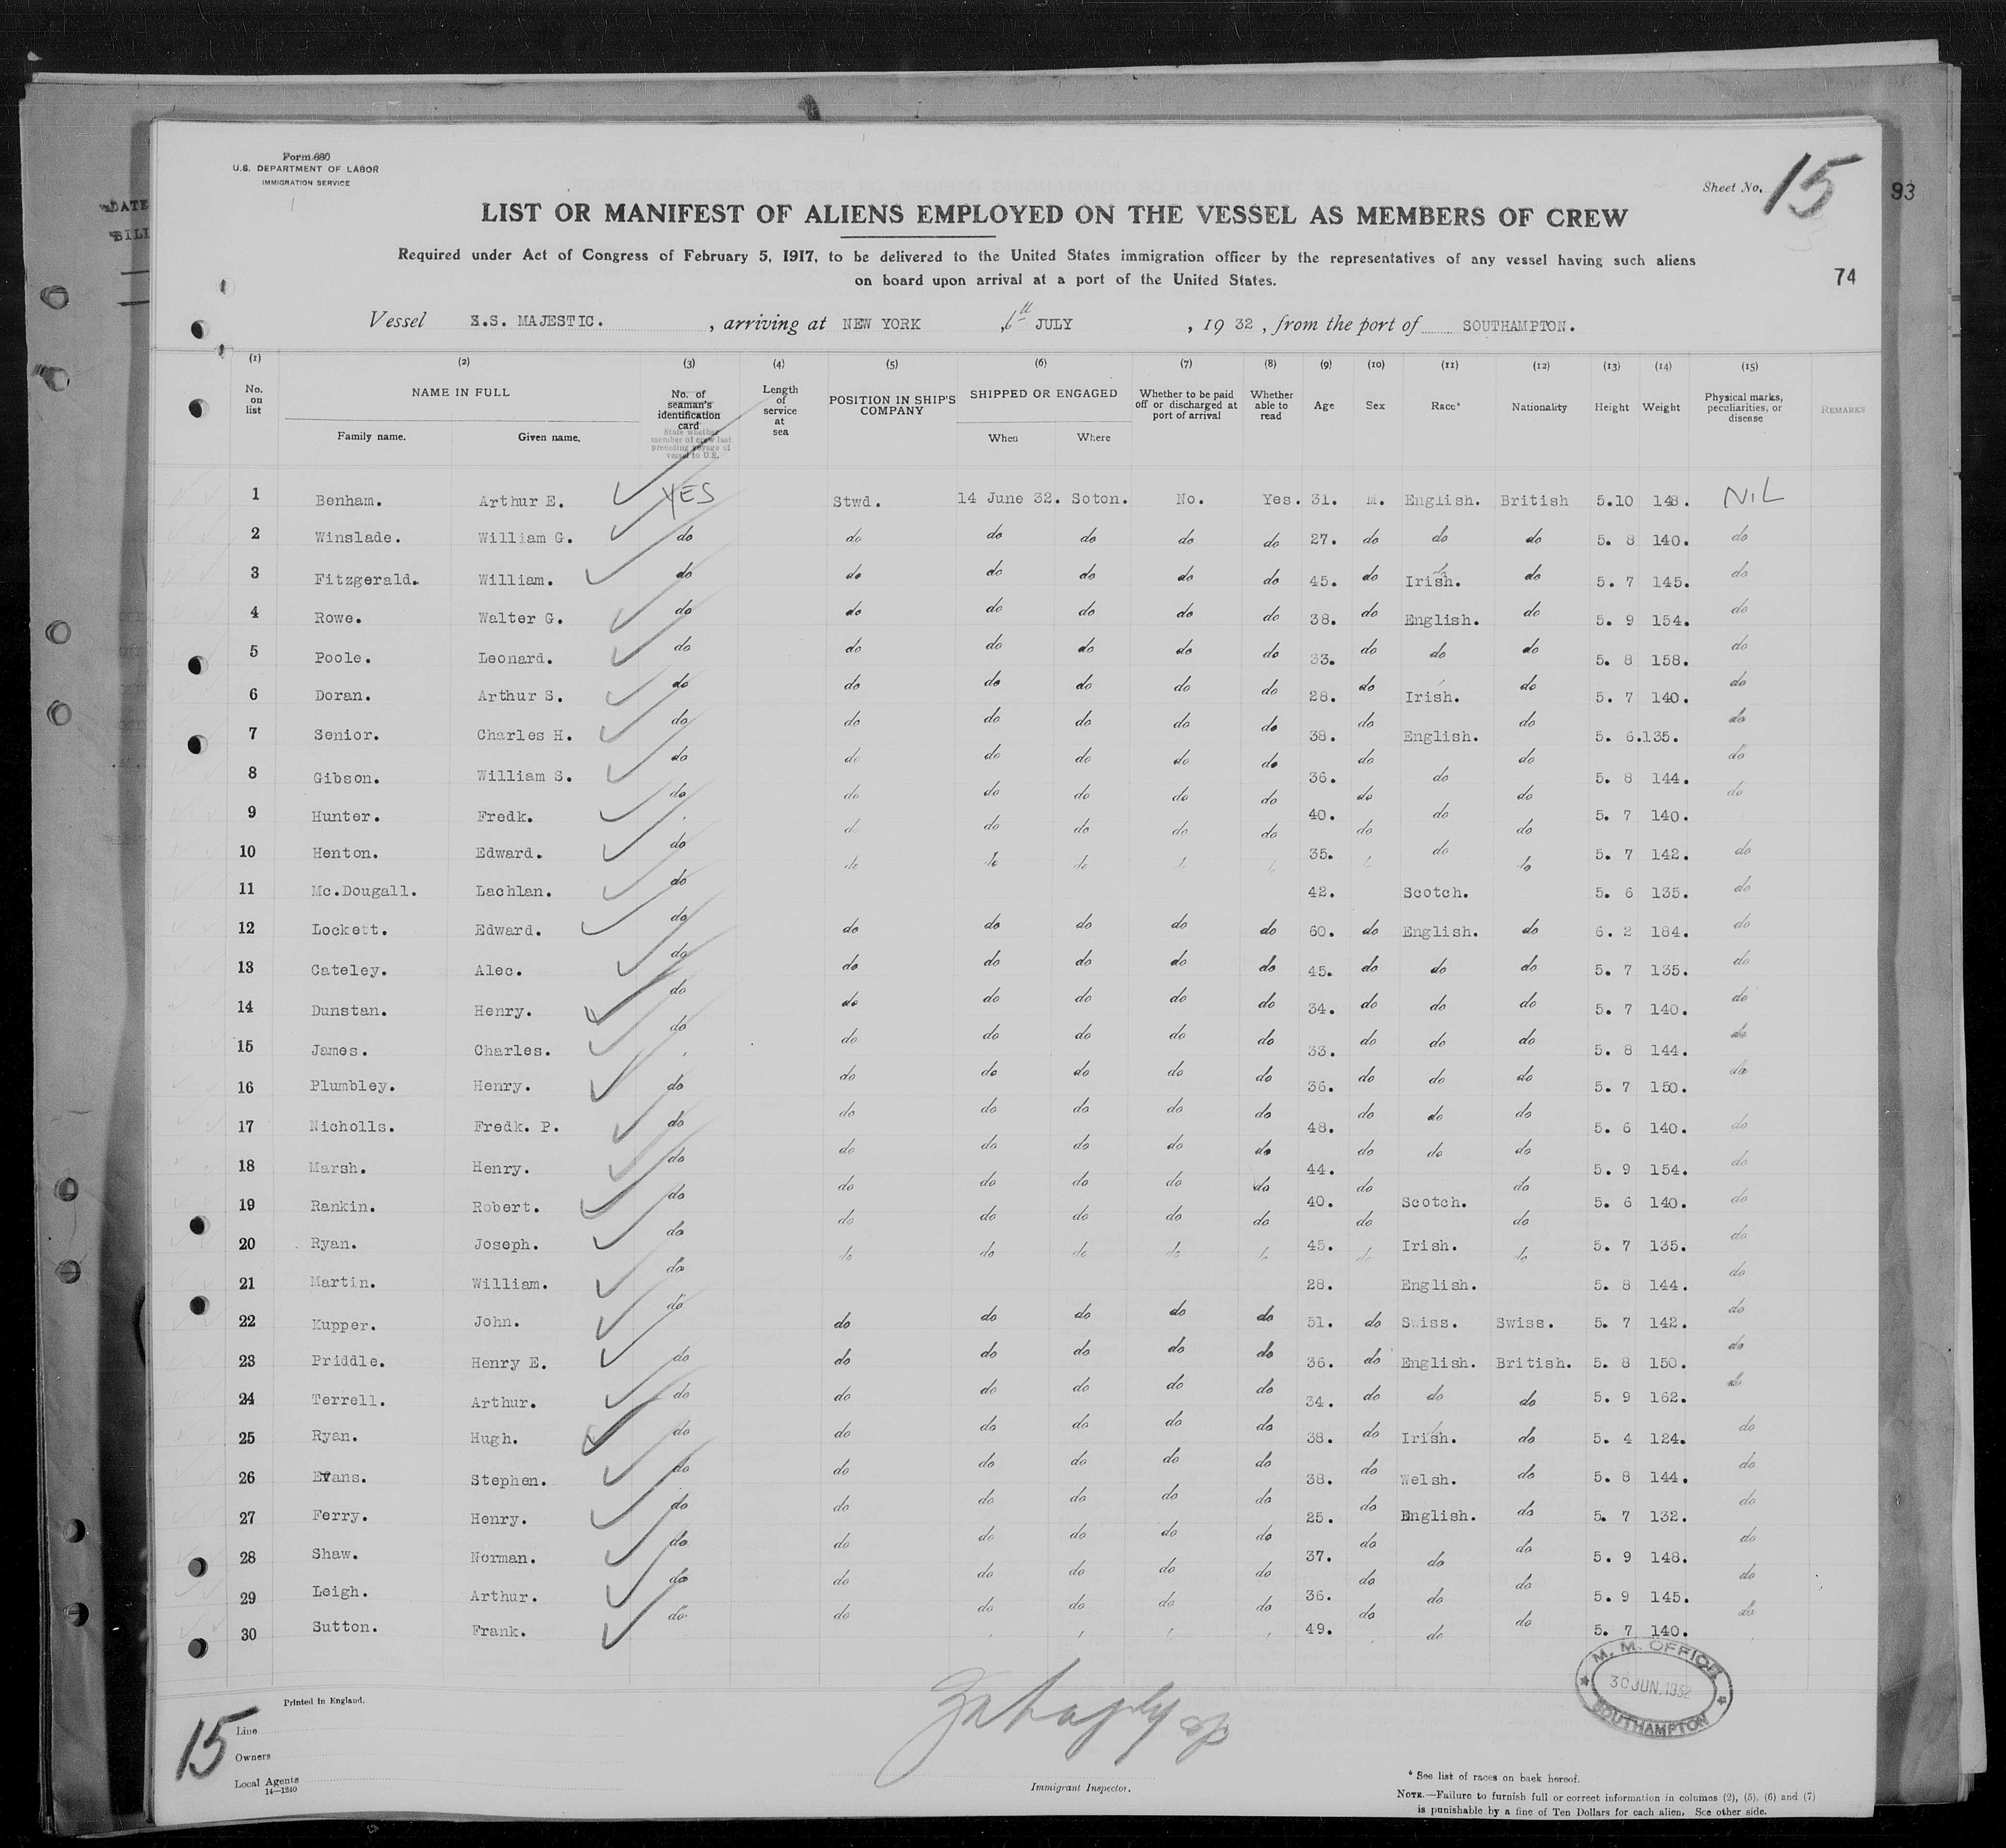 Form 680
U.S. DEPARTMENT OF LABOR
IMMIGRATION SERVICE
Sheet No. 15
93
LIST OR MANIFEST OF ALIENS EMPLOYED ON THE VESSEL AS MEMBERS OF CREW
Required under Act of Congress of February 5, 1917, to be delivered to the United States immigration officer by the representatives of any vessel having such aliens
on board upon arrival at a port of the United States.
74
DATE
BILL
Vessel S.S. MAJESTIC. , arriving at NEW YORK , 6th JULY , 19 32 , from the port of SOUTHAMPTON.
(1) (2) (3) (4) (5) (6) (7) (8) (9) (10) (11) (12) (13) (14) (15)
No. on list NAME IN FULL Family name. Given name. No. of seaman's identification card State whether member of crew last preceding voyage of vessel to U.S. Length of service at sea POSITION IN SHIP'S COMPANY SHIPPED OR ENGAGED When Where Whether to be paid off or discharged at port of arrival Whether able to read Age Sex Race* Nationality Height Weight Physical marks, peculiarities, or disease REMARKS
1 Benham. Arthur E. YES Stwd. 14 June 32. Soton. No. Yes. 31. M. English. British 5.10 148. NIL
2 Winslade. William G. do do do do do do 27. do do do 5. 8 140. do
3 Fitzgerald. William. do do do do do do 45. do Irish. do 5. 7 145. do
4 Rowe. Walter G. do do do do do do 38. do English. do 5. 9 154. do
5 Poole. Leonard. do do do do do do 33. do do do 5. 8 158. do
6 Doran. Arthur S. do do do do do do 28. do Irish. do 5. 7 140. do
7 Senior. Charles H. do do do do do do 38. do English. do 5. 6. 135. do
8 Gibson. William S. do do do do do do 36. do do do 5. 8 144. do
9 Hunter. Fredk. do do do do do do 40. do do do 5. 7 140. do
10 Henton. Edward. do do do do do do 35. do do do 5. 7 142. do
11 Mc.Dougall. Lachlan. do do do do 42. Scotch. do 5. 6 135. do
12 Lockett. Edward. do do do do do do 60. do English. do 6. 2 184. do
13 Cateley. Alec. do do do do do do 45. do do do 5. 7 135. do
14 Dunstan. Henry. do do do do do do 34. do do do 5. 7 140. do
15 James. Charles. do do do do do do 33. do do do 5. 8 144. do
16 Plumbley. Henry. do do do do do do 36. do do do 5. 7 150. do
17 Nicholls. Fredk. P. do do do do do do 48. do do do 5. 6 140. do
18 Marsh. Henry. do do do do do do 44. do do do 5. 9 154. do
19 Rankin. Robert. do do do do do do 40. do Scotch. do 5. 6 140. do
20 Ryan. Joseph. do do do do do do 45. do Irish. do 5. 7 135. do
21 Martin. William. do do do do do do 28. do English. do 5. 8 144. do
22 Kupper. John. do do do do do do 51. do Swiss. Swiss. 5. 7 142. do
23 Priddle. Henry E. do do do do do do 36. do English. British. 5. 8 150. do
24 Terrell. Arthur. do do do do do do 34. do do do 5. 9 162. do
25 Ryan. Hugh. do do do do do do 38. do Irish. do 5. 4 124. do
26 Evans. Stephen. do do do do do do 38. do Welsh. do 5. 8 144. do
27 Ferry. Henry. do do do do do do 25. do English. do 5. 7 132. do
28 Shaw. Norman. do do do do do do 37. do do do 5. 9 148. do
29 Leigh. Arthur. do do do do do do 36. do do do 5. 9 145. do
30 Sutton. Frank. do do do do do do 49. do do do 5. 7 140. do
Printed in England.
15
Line
Owners
Local Agents
14—1240
Immigrant Inspector.
M. M. OFFICE
30 JUN. 1932
SOUTHAMPTON
* See list of races on back hereof.
NOTE.—Failure to furnish full or correct information in columns (2), (5), (6) and (7)
is punishable by a fine of Ten Dollars for each alien. See other side.